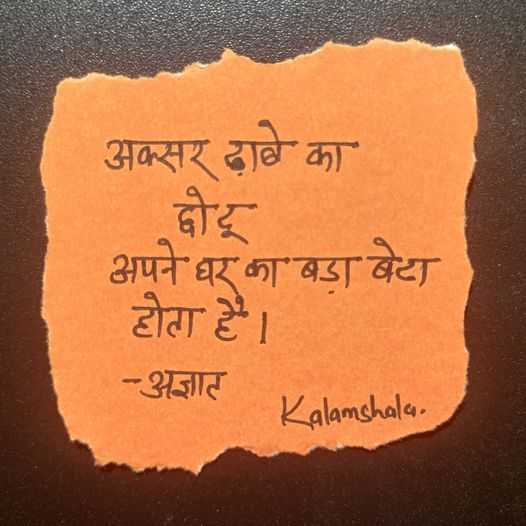 अक्सर ढ़ाबे का
छोटू
अपने घर का बड़ा बेटा
होता है।
-अज्ञात
Kalamshala.